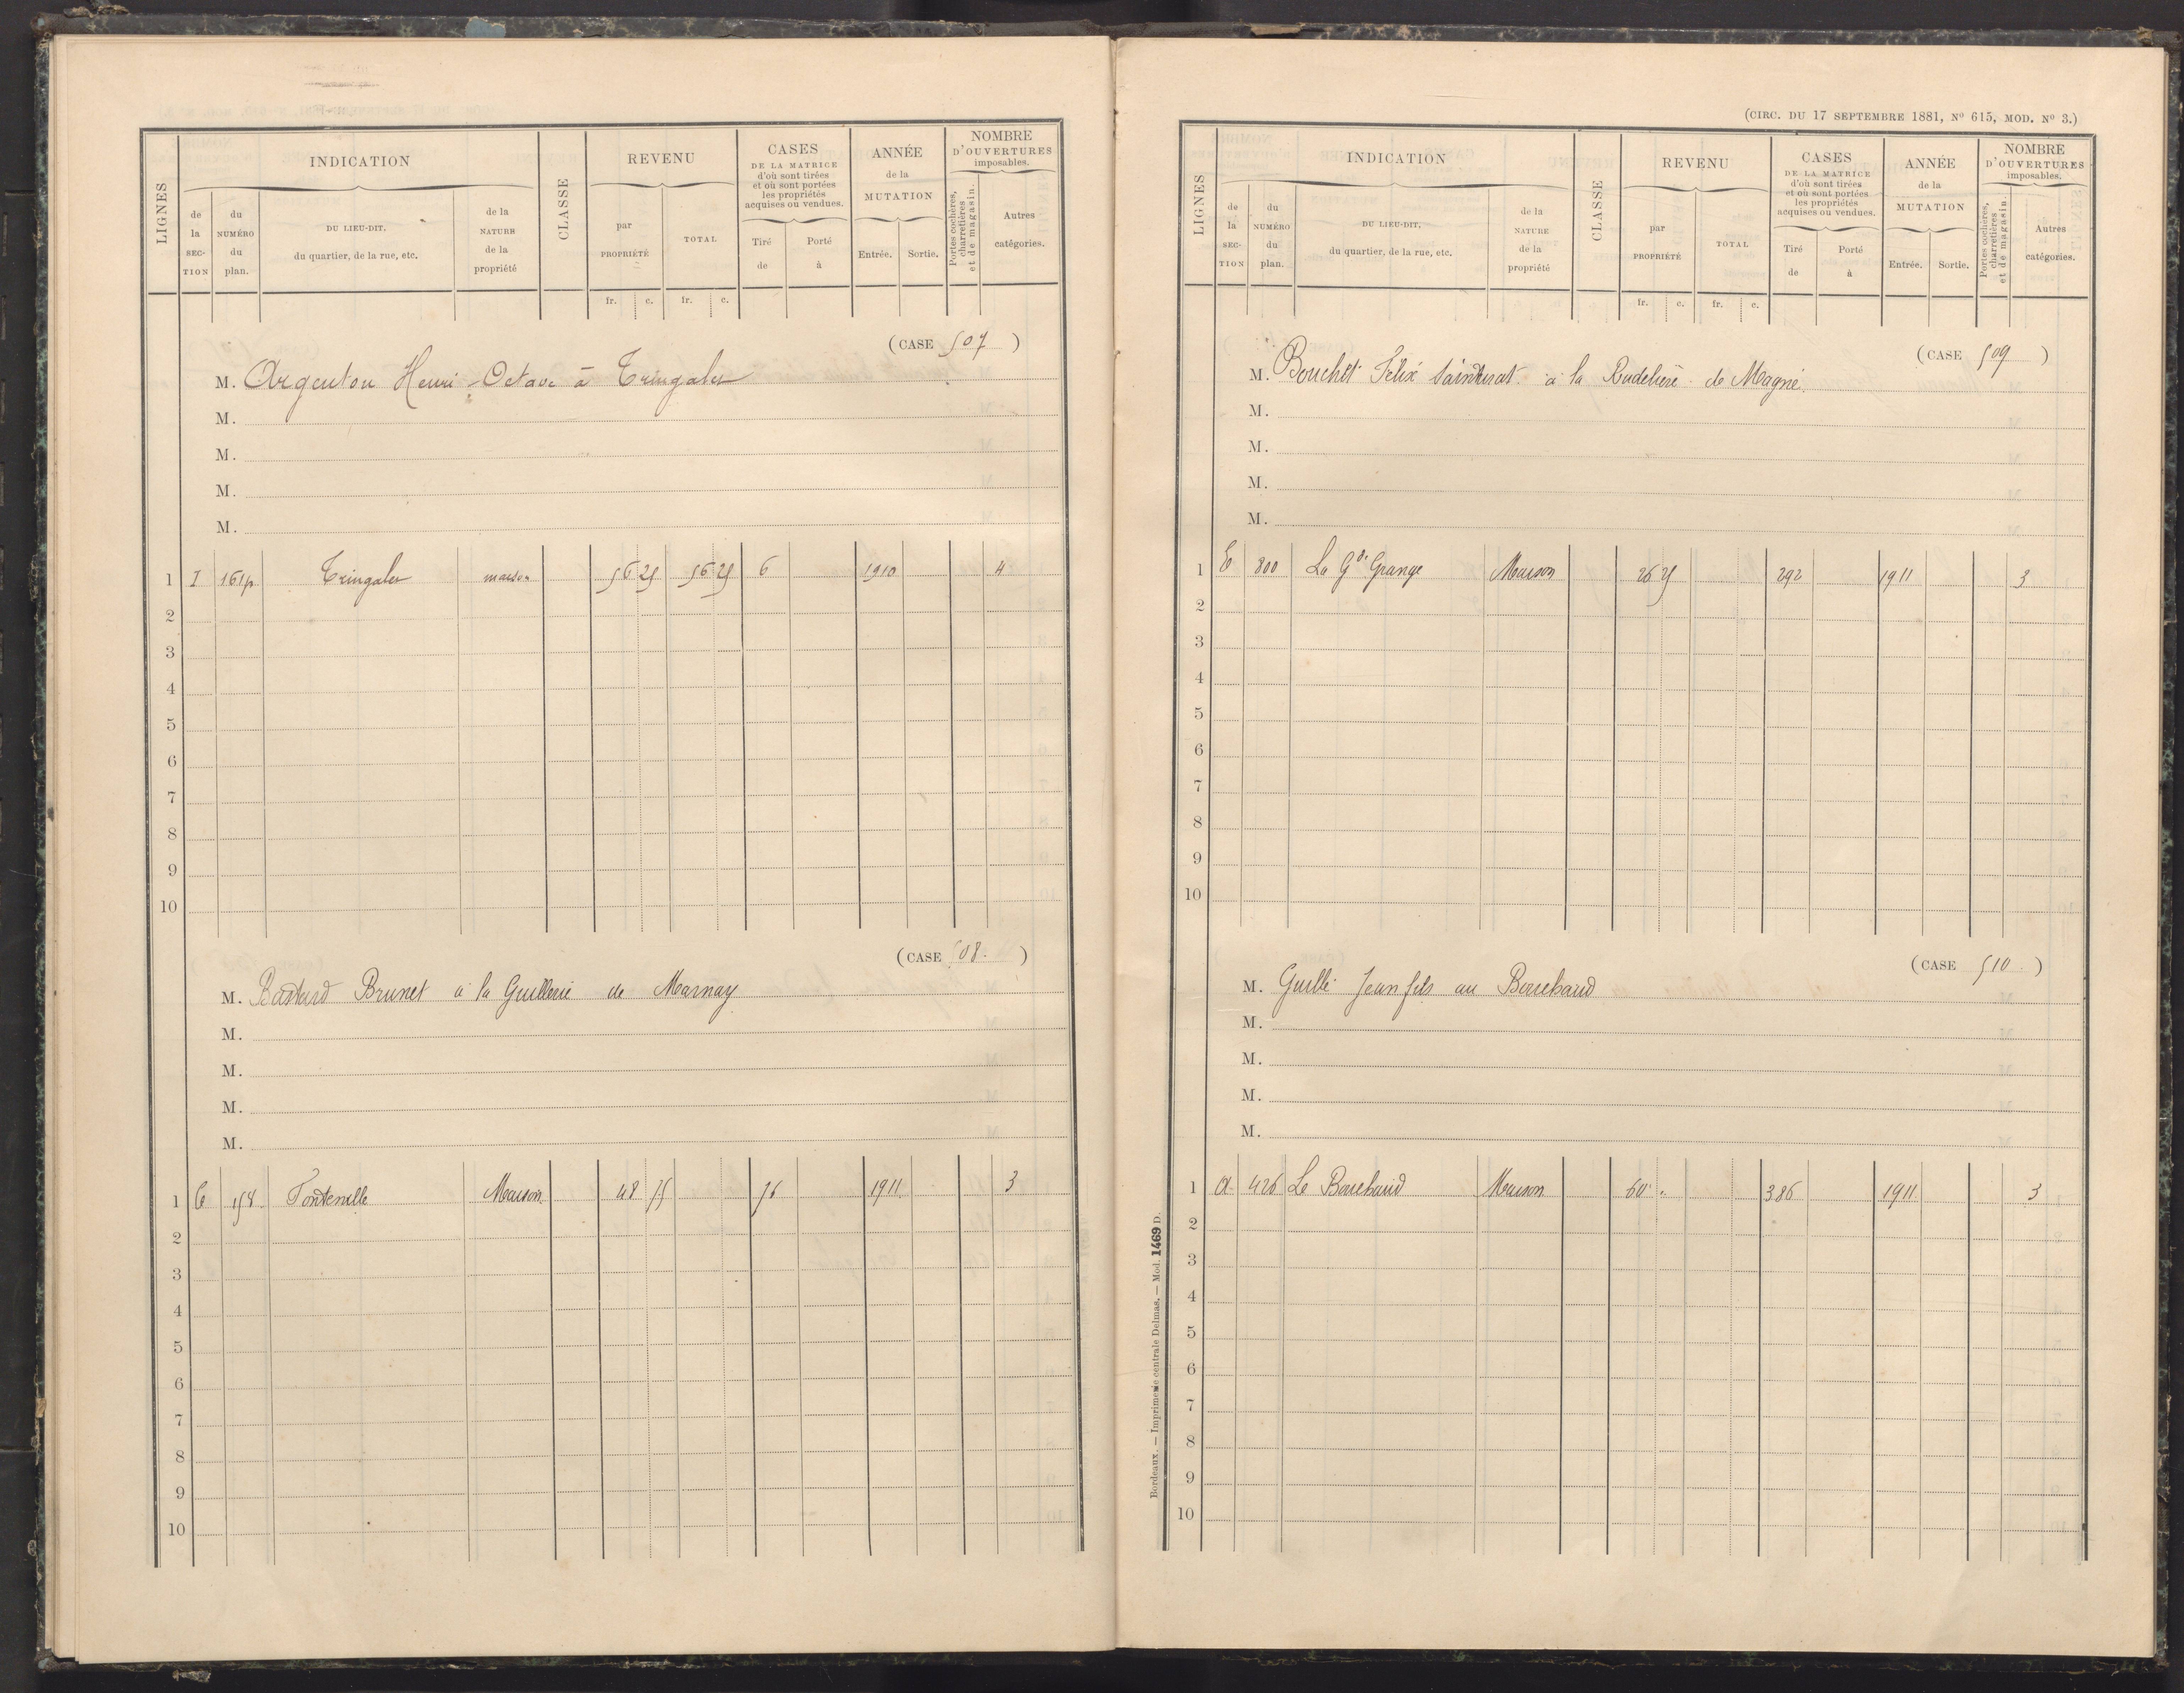 LIGNES
INDICATION
de la SECTION
du NUMÉRO du plan.
DU LIEU-DIT, du quartier, de la rue, etc.
de la NATURE de la propriété
CLASSE
REVENU
par PROPRIÉTÉ
TOTAL
CASES DE LA MATRICE d'où sont tirées et où sont portées les propriétés acquises ou vendues.
Tiré de
Porté à
ANNÉE de la MUTATION
Entrée. Sortie.
NOMBRE D'OUVERTURES imposables.
Portes cochères, charretières et de magasin.
Autres catégories.
fr. c. fr. c.
(CASE 507)
M. Argenton Henri-Octave à Tringalet
M.
M.
M.
M.
1 I 161p Tringalet maison 56 25 56 25 6 1910 4
2
3
4
5
6
7
8
9
10
(CASE 508.)
M. Bastard Brunet à la Guillerie de Marnay
M.
M.
M.
M.
1 C 158. Fontenille Maison 48 75 76 1911. 3
2
3
4
5
6
7
8
9
10
(CIRC. DU 17 SEPTEMBRE 1881, Nº 615, MOD. Nº 3.)
LIGNES
INDICATION
de la SECTION
du NUMÉRO du plan.
DU LIEU-DIT, du quartier, de la rue, etc.
de la NATURE de la propriété
CLASSE
REVENU
par PROPRIÉTÉ
TOTAL
CASES DE LA MATRICE d'où sont tirées et où sont portées les propriétés acquises ou vendues.
Tiré de
Porté à
ANNÉE de la MUTATION
Entrée. Sortie.
NOMBRE D'OUVERTURES imposables.
Portes cochères, charretières et de magasin.
Autres catégories.
fr. c. fr. c.
(CASE 509)
M. Bouchet Félix à la Rudelière de Magné.
M.
M.
M.
M.
1 E 800 La Gde Grange Maison 26 25 292 1911 3
2
3
4
5
6
7
8
9
10
(CASE 510.)
M. Guillé Jean fils au Bouchaud
M.
M.
M.
M.
1 A 426 Le Bouchaud Maison 60 " 386 1911 3
2
3
4
5
6
7
8
9
10
Bordeaux. — Imprimerie centrale Delmas, — Mod. 1469 D.